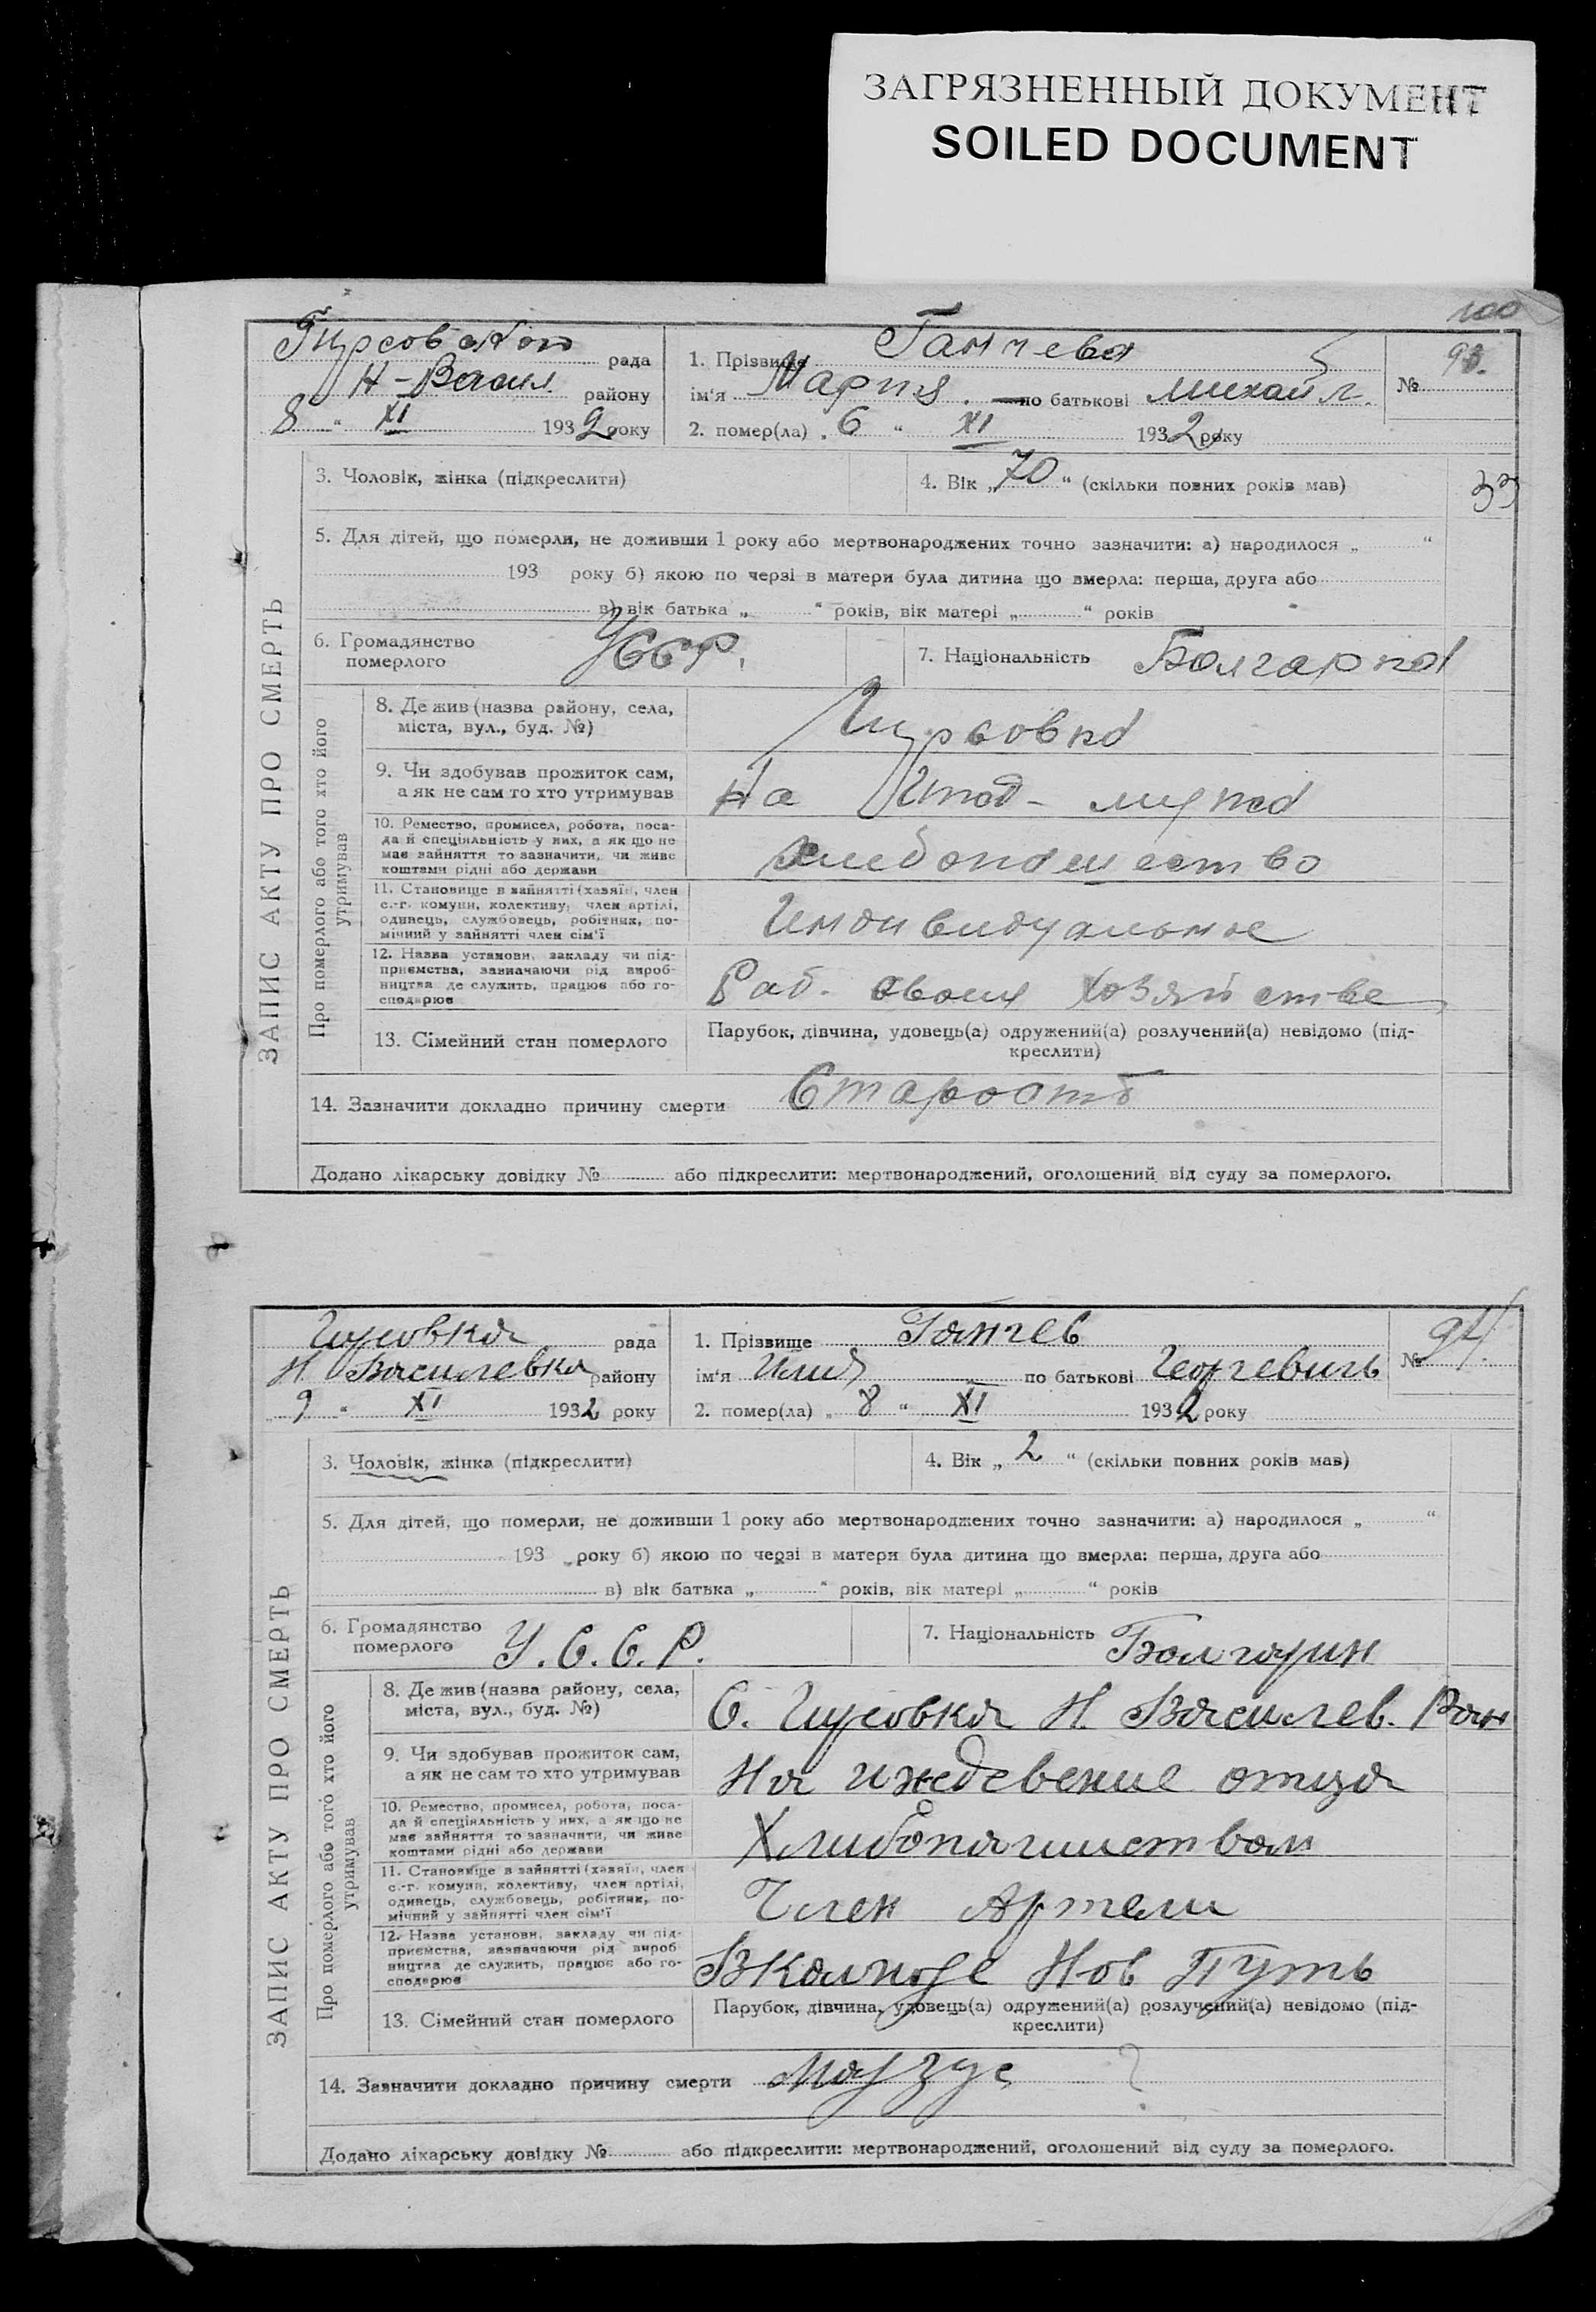 ЗАГРЯЗНЕННЫЙ ДОКУМЕНТ
SOILED DOCUMENT
100
ЗАПИС АКТУ ПРО СМЕРТЬ
Гирсовской рада
Н-Васил. району
8 " XI 1932 року
1. Прізвище Ганчева
ім'я Мария по батькові Михайл.
№ 93.
2. помер(ла) „ 6 " XI 1932 року
3. Чоловік, жінка (підкреслити)
4. Вік „ 70 " (скільки повних років мав)
33
5. Для дітей, що померли, не доживши 1 року або мертвонароджених точно зазначити: а) народилося „ "
193 року б) якою по черзі в матери була дитина що вмерла: перша, друга або
в) вік батька „ " років, вік матері „ " років
6. Громадянство померлого УССР.
7. Національність Болгарка
Про померлого або того хто його утримував
8. Де жив (назва району, села, міста, вул., буд. №) Гирсовка
9. Чи здобував прожиток сам, а як не сам то хто утримував На
10. Ремество, промисел, робота, поса-
да й спеціяльність у них, а як що не
має зайняття то зазначити, чи живе
коштами рідні або держави
11. Становище в зайнятті (хазяїн, член
с.-г. комуни, колективу, член артілі,
одинець, службовець, робітник, по-
мічний у зайнятті член сім'ї Индивидуальное
12. Назва установи, закладу чи під-
приємства, зазначаючи рід вироб-
ництва де служить, працює або го-
сподарює Раб. своем хозяйстве
13. Сімейний стан померлого
Парубок, дівчина, удовець(а) одружений(а) розлучений(а) невідомо (під-
креслити)
14. Зазначити докладно причину смерти Старость
Додано лікарську довідку № або підкреслити: мертвонароджений, оголошений від суду за померлого.
ЗАПИС АКТУ ПРО СМЕРТЬ
Гирсовка рада
Н Василевка району
9 " XI 1932 року
1. Прізвище Ганчев
ім'я Илия по батькові Георгевичь
№ 94.
2. помер(ла) „ 8 " XI 1932 року
3. Чоловік, жінка (підкреслити)
4. Вік „ 2 " (скільки повних років мав)
5. Для дітей, що померли, не доживши 1 року або мертвонароджених точно зазначити: а) народилося „ "
193 року б) якою по черзі в матери була дитина що вмерла: перша, друга або
в) вік батька „ " років, вік матері „ " років
6. Громадянство померлого У.С.С.Р.
7. Національність Болгарин
Про померлого або того хто його утримував
8. Де жив (назва району, села, міста, вул., буд. №) С. Гирсовка Н. Василев. Рон
9. Чи здобував прожиток сам, а як не сам то хто утримував На иждевение отца
10. Ремество, промисел, робота, поса-
да й спеціяльність у них, а як що не
має зайняття то зазначити, чи живе
коштами рідні або держави
11. Становище в зайнятті (хазяїн, член
с.-г. комуни, колективу, член артілі,
одинець, службовець, робітник, по-
мічний у зайнятті член сім'ї Член Артели
12. Назва установи, закладу чи під-
приємства, зазначаючи рід вироб-
ництва де служить, працює або го-
сподарює Нов Путь
13. Сімейний стан померлого
Парубок, дівчина, удовець(а) одружений(а) розлучений(а) невідомо (під-
креслити)
14. Зазначити докладно причину смерти ?
Додано лікарську довідку № або підкреслити: мертвонароджений, оголошений від суду за померлого.